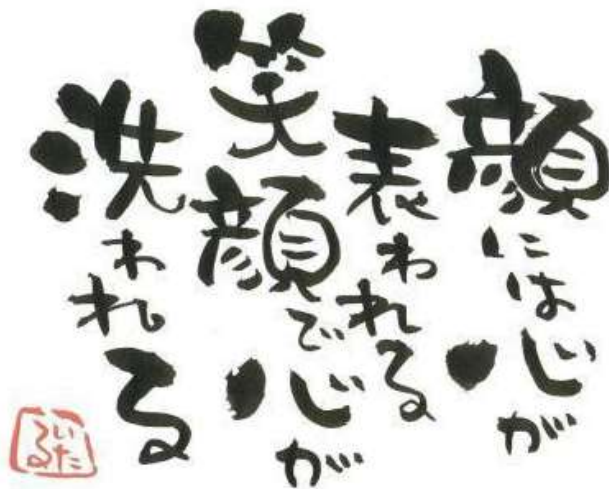 顔には心が
表われる
笑顔で心が
洗われる
いたる